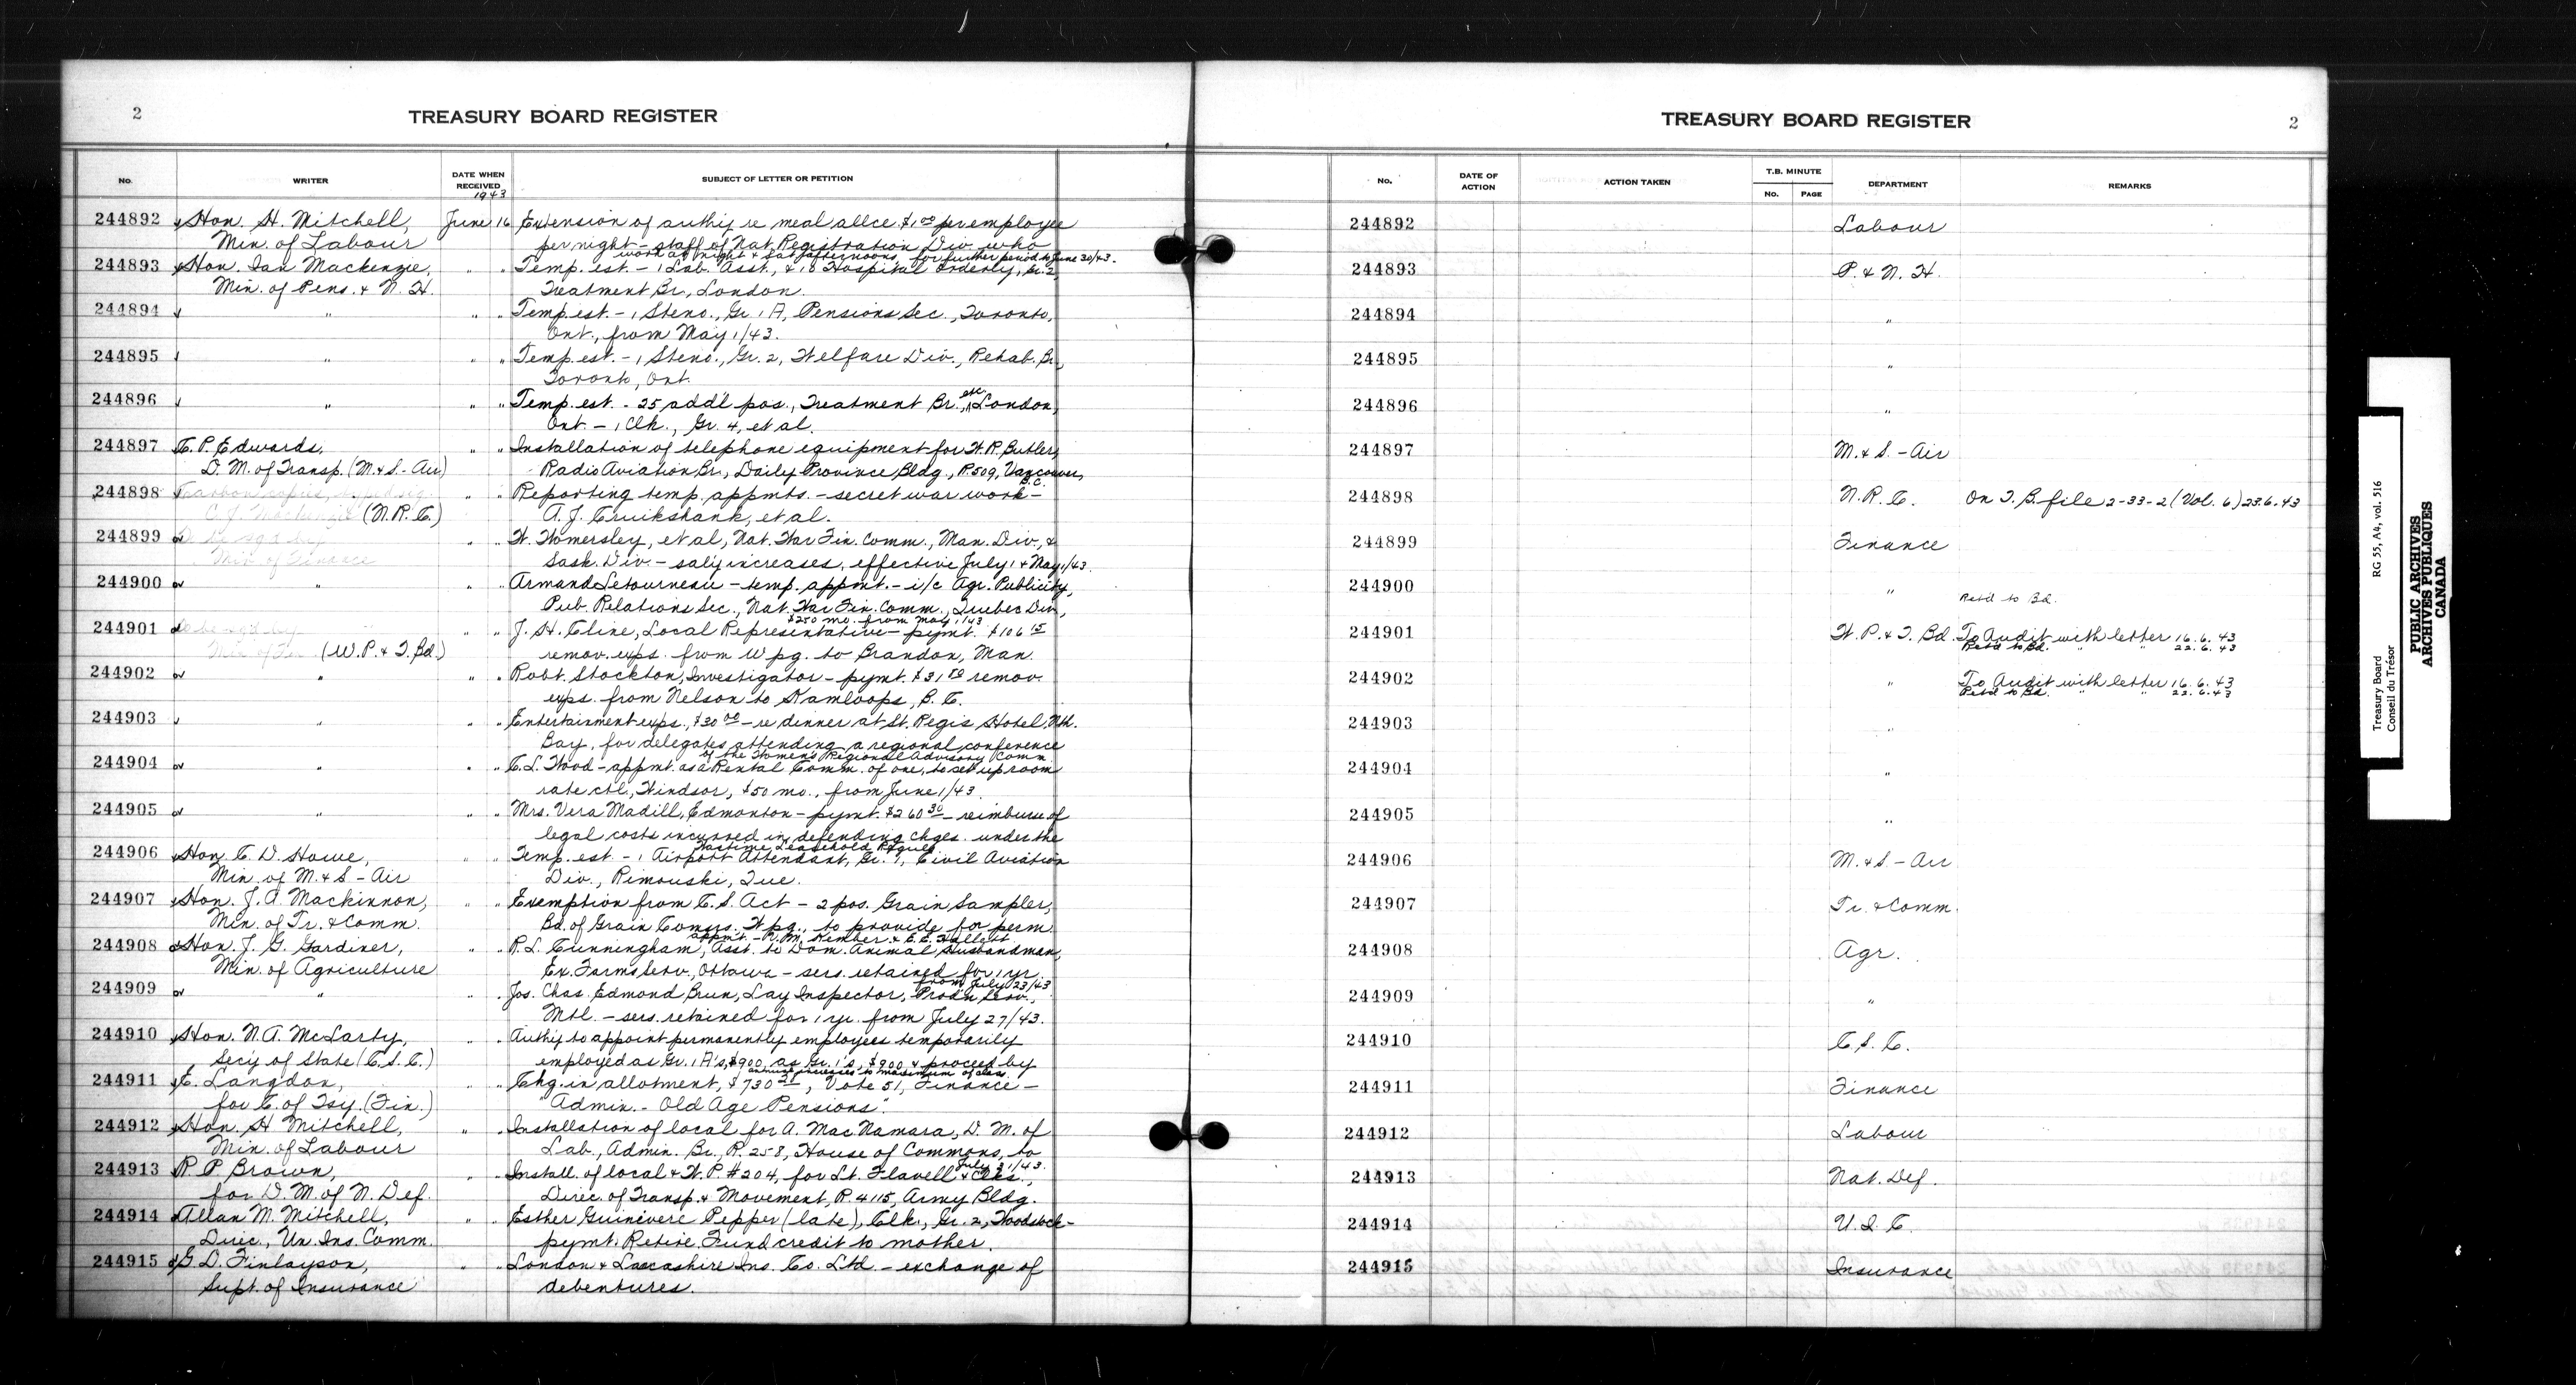 2
TREASURY BOARD REGISTER
No.
WRITER
DATE WHEN RECEIVED
1943
SUBJECT OF LETTER OR PETITION
244892 Hon. H. Mitchell, June 16 Extension of authy re meal allce. $1.00 per employee
Min. of Labour per night - staff of Nat. Registration Div. who
work at night & Sat. afternoons, for further period to June 30/43.
244893 Hon. Ian Mackenzie, " " Temp. est. - 1 Lab. Asst., & 10 Hospital Orderly, Gr. 2,
Min. of Pens. & N. H. Treatment Br., London.
244894 " " " Temp. est. - 1 Steno., Gr. 1A, Pensions Sec., Toronto,
Ont., from May 1/43.
244895 " " " Temp. est. - 1 Steno., Gr. 2, Welfare Div., Rehab. Br.,
Toronto, Ont.
244896 " " " Temp. est. - 25 add'l pos., Treatment Br., etc., London,
Ont. - 1 Clk., Gr. 4, et al.
244897 C. P. Edwards, " " Installation of telephone equipment for W. R. Butler,
D. M. of Transp. (M. & S. - Air) Radio Aviation Br., Daily Province Bldg., R. 509, Vancouver,
B.C.
244898 " " Reporting temp. appmts. - secret war work -
C. J. Mackenzie (N. R. C.) A. J. Cruikshank, et al.
244899 " " W. Homersley, et al, Nat. War Fin. Comm., Man. Div., &
Min. of Finance Sask. Div. - saly increases, effective July 1 & May 1/43.
244900 " " " Armand Letourneau - temp. appmt. - i/c Agr. Publicity,
Pub. Relations Sec., Nat. War Fin. Comm., Quebec Div.,
$250 mo. from May 1/43
244901 " " J. H. Cline, Local Representative - pymt. $106.15
Min. of Fin. (W. P. & T. Bd.) remov. exps. from Wpg. to Brandon, Man.
244902 " " " Robt. Stockton, Investigator - pymt. $31.50 remov.
exps. from Nelson to Kamloops, B. C.
244903 " " " Entertainment exps., $30.00 - re dinner at St. Regis Hotel, Nth.
Bay, for delegates attending a regional conference
of the Women's Regional Advisory Comm.
244904 " " " C. L. Wood - appmt. as a Rental Comm. of one, to set up room
rate ctl., Windsor, $50 mo., from June 1/43.
244905 " " " Mrs. Vera Madill, Edmonton - pymt. $260.30 - reimburse of
legal costs incurred in defending chges. under the
Wartime Leasehold Regu's
244906 Hon. C. D. Howe, " " Temp. est. - 1 Airport Attendant, Gr. 1, Civil Aviation
Min. of M. & S - Air Div., Rimouski, Que.
244907 Hon. J. A. Mackinnon, " " Exemption from C. S. Act - 2 pos. Grain Sampler,
Min. of Tr. & Comm. Bd. of Grain Comrs. Wpg., to provide for perm.
appmt. - R. M. Kember & E. E. Hallett
244908 Hon. J. G. Gardiner, " " R. L. Cunningham, Asst. to Dom. Animal Husbandman,
Min. of Agriculture Ex. Farms Serv., Ottawa - sers. retained for 1 yr.
from July 23/43
244909 " " " Jos. Chas. Edmond Brun, Lay Inspector, Prod'n Serv.,
Mtl. - sers. retained for 1 yr. from July 27/43.
244910 Hon. N. A. McLarty, " " Authy to appoint permanently employees temporarily
Secy of State (C. S. C.) employed as Gr. 1A's, $900, as Gr. 1's, $900 & proceed by
annual increases to maximum of class.
244911 C. Langdon, " " Chg. in allotment, $730, Vote 51, Finance -
for C. of Tsy. (Fin.) "Admin. - Old Age Pensions".
244912 Hon. H. Mitchell, " " Installation of local for A. MacNamara, D. M. of
Min. of Labour Lab., Admin. Br., R. 258, House of Commons, to
July 31/43.
244913 R. P. Brown, " " Install. of local & W. P. #204, for Lt. Flavell & Clks.,
for D. M. of N. Def. Direc. of Transp. & Movement, R. 4115, Army Bldg.
244914 Allan M. Mitchell, " " Esther Guinevere Pepper (late), Clk., Gr. 2, Woodstock -
Direc., Un. Ins. Comm. pymt. Retire. Fund credit to mother.
244915 G. D. Finlayson, " " London & Lancashire Ins. Co. Ltd. - exchange of
Supt. of Insurance debentures.
TREASURY BOARD REGISTER
2
No.
DATE OF ACTION
ACTION TAKEN
T.B. MINUTE
No.
PAGE
DEPARTMENT
REMARKS
244892 Labour
244893 P. & N. H.
244894 "
244895 "
244896 "
244897 M. & S. - Air
244898 N. R. C. On T. B. file 2-33-2 (Vol. 6) 23.6.43
244899 Finance
244900 " Retd to Bd.
244901 W. P. & T. Bd. To Audit with letter 16.6.43
Retd to Bd. " " 22.6.43
244902 " To Audit with letter 16.6.43
Retd to Bd. " " 22.6.43
244903 "
244904 "
244905 "
244906 M. & S. - Air
244907 Tr. & Comm.
244908 Agr.
244909 "
244910 C. S. C.
244911 Finance
244912 Labour
244913 Nat. Def.
244914 U. I. C.
244915 Insurance
Treasury Board
Conseil du Trésor
RG 55, A4, vol. 516
PUBLIC ARCHIVES
ARCHIVES PUBLIQUES
CANADA